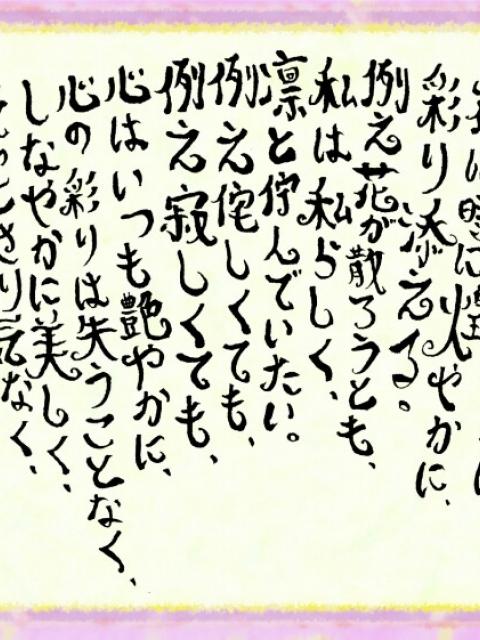 時に艶やかに、
彩り添える。
例え花が散ろうとも、
私は私らしく、
凛と佇んでいたい。
例え侘しくても、
例え寂しくても、
心はいつも艶やかに、
心の彩りは失うことなく、
しなやかに美しく、